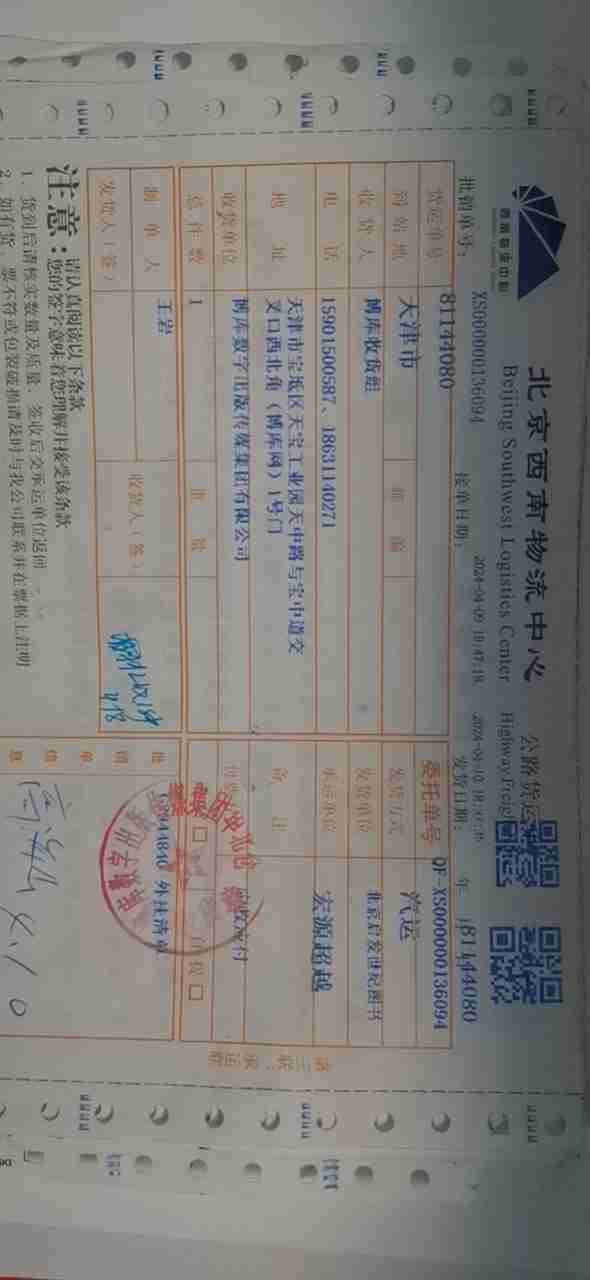 西南物流中心
北京西南物流中心
Beijing Southwest Logistics Center
公路货运
Highway Freig
批留单号: XS000000136094 接单日期: 2024-04-09 10:47:18 发货日期: 年
181144080
货运单号 81144080 委托单号 QF-XS000000136094
到站地 天津市 邮编 发货方式 汽运
收货人 博库收货组 发货单位 北京启发世纪图书
电话 15901500587、18631140271 承运单位 宏源超越
地址 天津市宝坻区天宝工业园天中路与宝中道交
叉口西北角(博库网)1号门 备注
收货单位 博库数字出版传媒集团有限公司 付
总件数 1 重量 自提
制单人 王岩 收货人(签)
发货人(签)
批销单信息
外挂清单
注意:
请认真阅读以下条款
您的签字意味着您理解并接受该条款
1、货到后请核实数量及质量,签收后交承运单位返回
2、如有货、票不符或包装破损请及时与我公司联系并在票据上注明
第三联:承运联